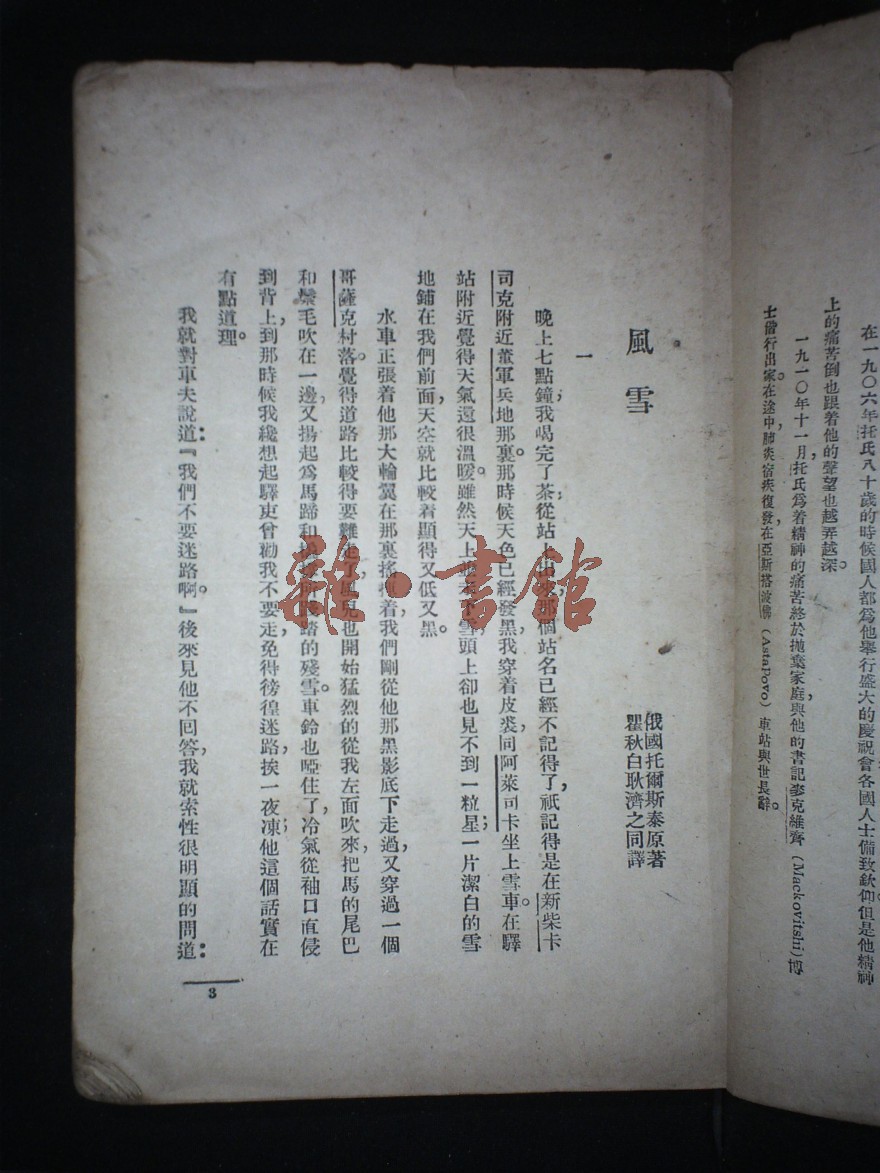 在一九〇六年托氏八十歲的時候國人都爲他舉行盛大的慶祝會各國人士備致欽仰但是他精神
上的痛苦倒也跟着他的聲望也越弄越深。
一九一〇年十一月，托氏爲着精神的痛苦終於拋棄家庭與他的書記麥克維齊（Mackovitshi）博
士偕行出家。在途中肺炎宿疾復發，在亞斯塔波佛（Astapovo）車站與世長辭。
風雪
俄國托爾斯泰原著
瞿秋白耿濟之同譯
一
晚上七點鐘；我喝完了茶，從站上出來，那個站名已經不記得了，祇記得是在新柴卡
司克附近董軍兵地那裏。那時候天色已經發黑，我穿着皮裘，同阿萊司卡坐上雪車。在驛
站附近覺得天氣還很溫暖。雖然天上並不下雪，頭上卻也見不到一粒星；一片潔白的雪
地鋪在我們前面，天空就比較着顯得又低又黑。
水車正張着他那大輪翼在那裏搖擺着，我們剛從他那黑影底下走過，又穿過一個
哥薩克村落。覺得道路比較得要難走了，風兒也開始猛烈的從我左面吹來，把馬的尾巴
和鬃毛吹在一邊，又揚起爲馬蹄和所踐踏的殘雪。車鈴也啞住了；冷氣從袖口直侵
到背上，到那時候我纔想起驛吏曾勸我不要走，免得徬徨迷路，挨一夜凍。他這個話實在
有點道理。
我就對車夫說道：『我們不要迷路啊。』後來見他不回答，我就索性很明顯的問道：
3
雜·書館